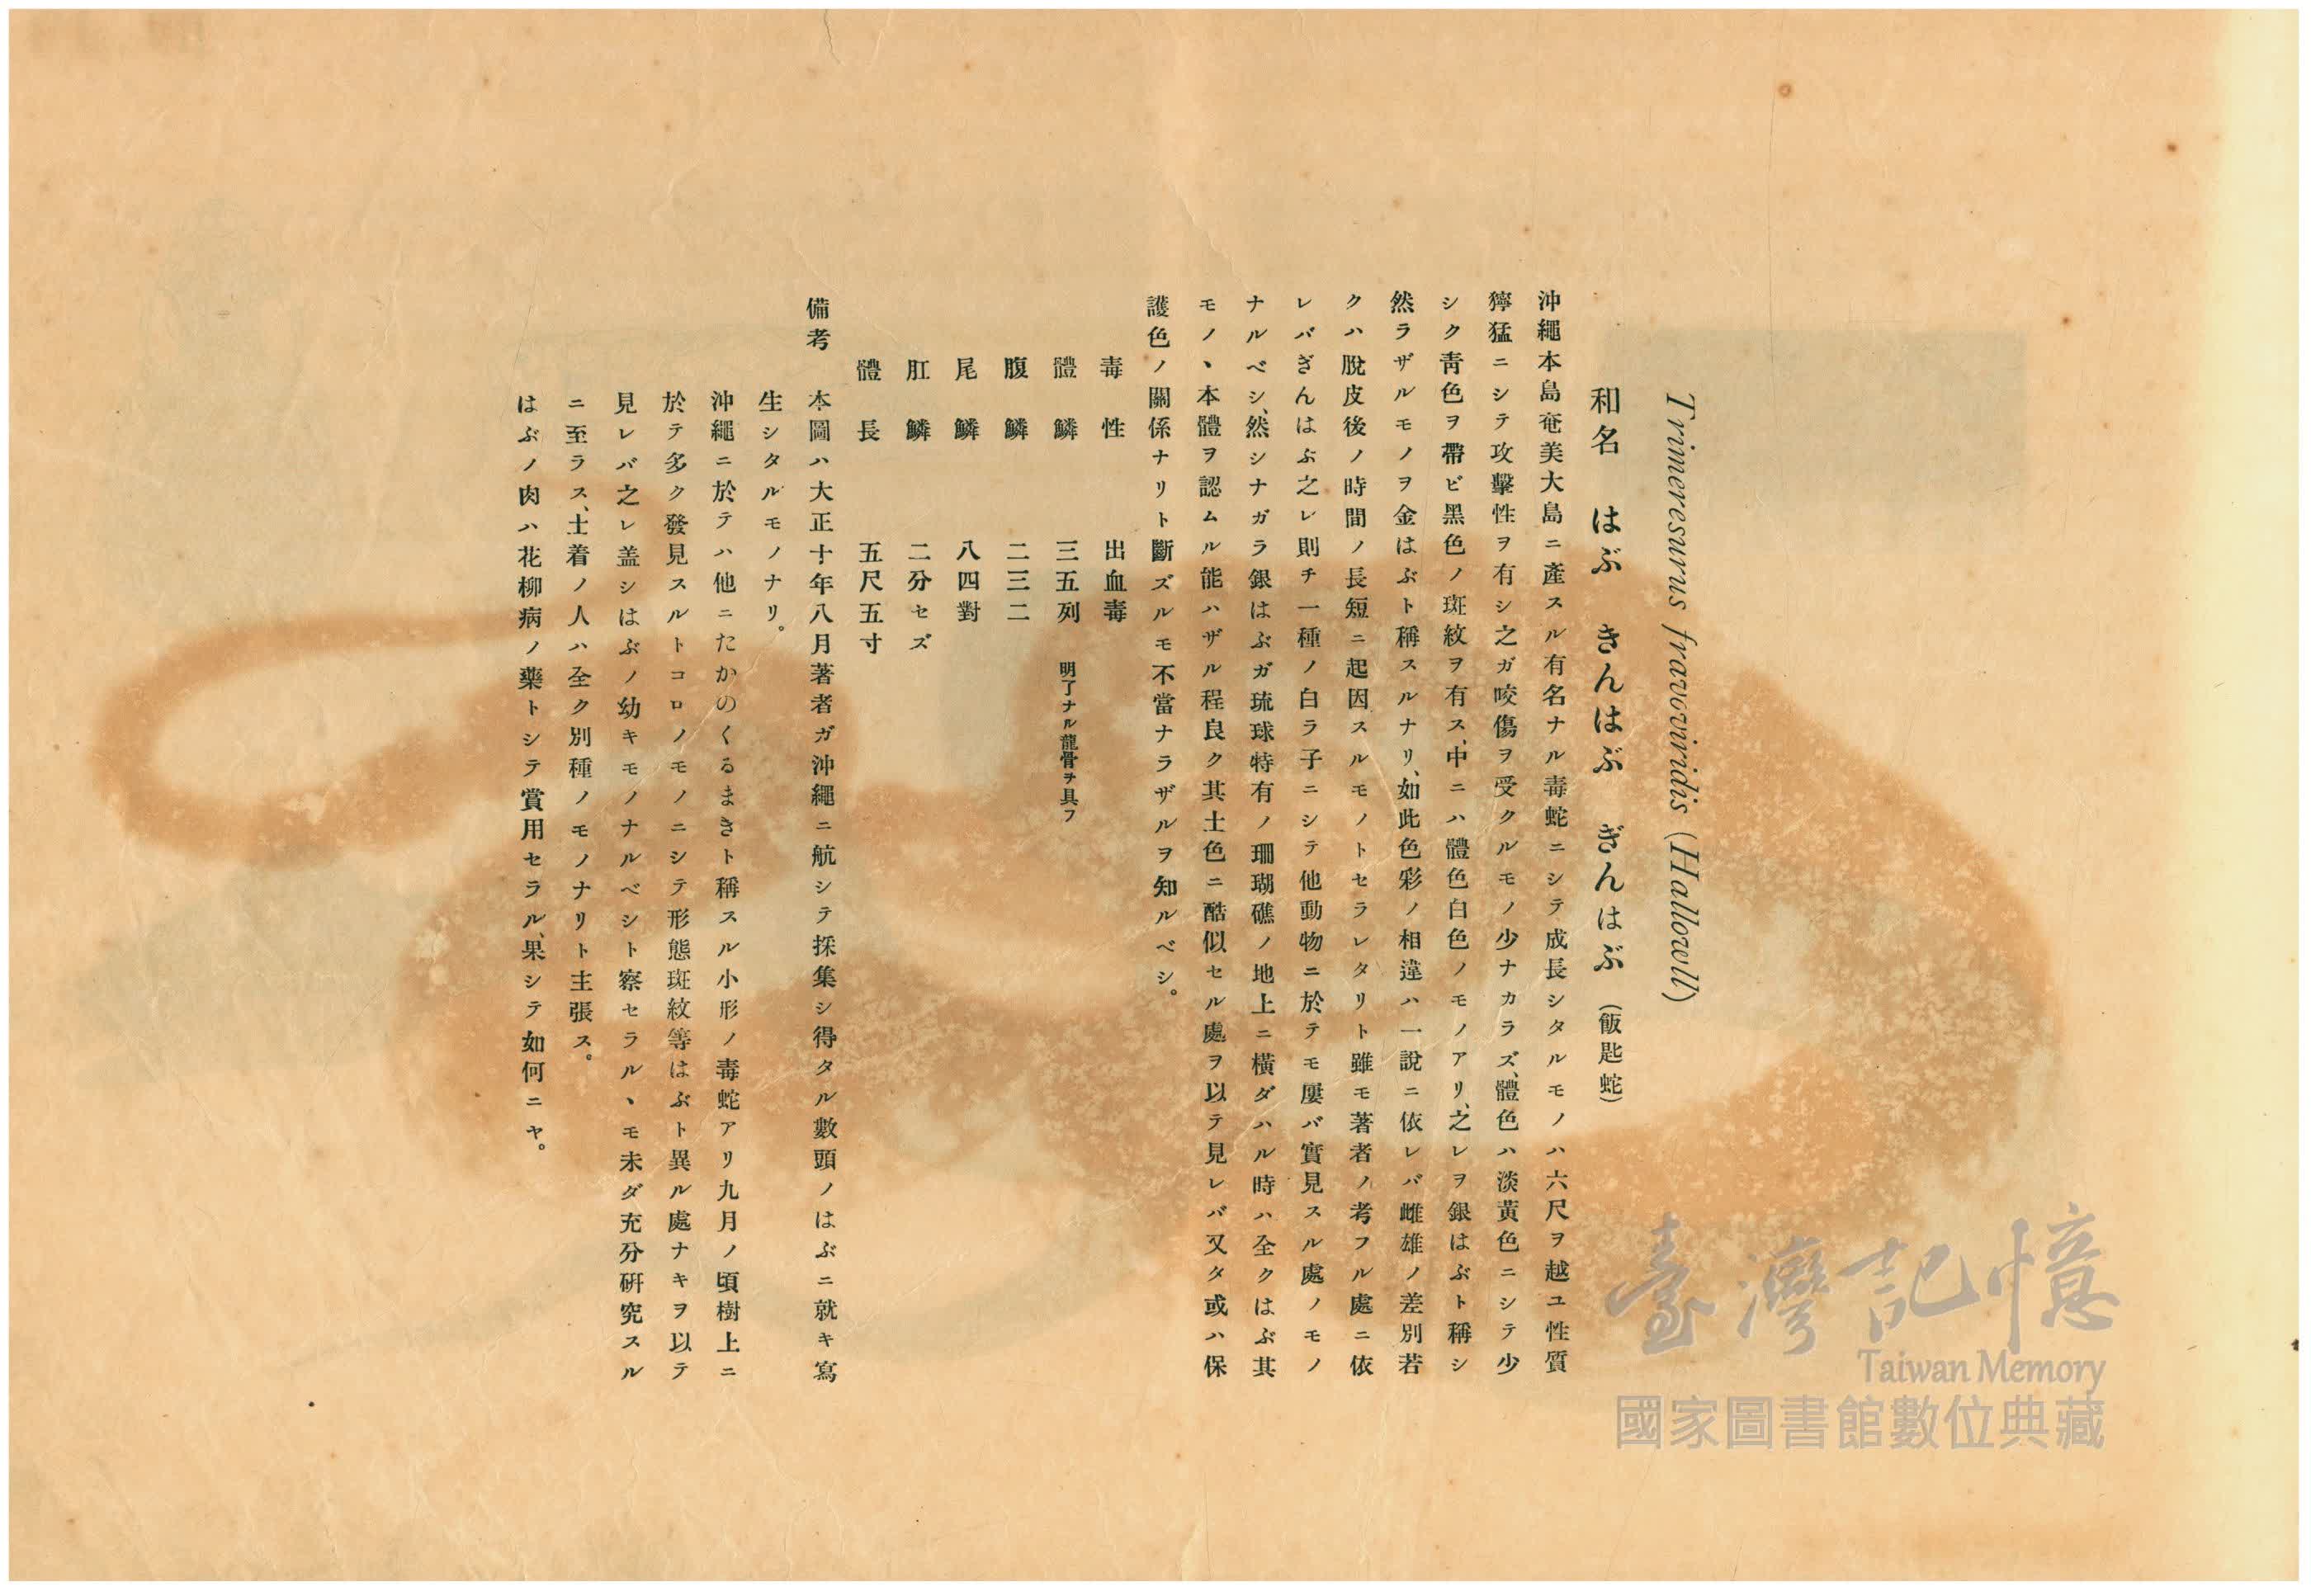 Trimeresurus fravoviridis (Hallowll)
和名　はぶ　きんはぶ　ぎんはぶ（飯匙蛇）
沖繩本島奄美大島ニ產スル有名ナル毒蛇ニシテ成長シタルモノハ六尺ヲ越ユ性質
獰猛ニシテ攻擊性ヲ有シ之ガ咬傷ヲ受クルモノ少ナカラズ、體色ハ淡黃色ニシテ少
シク靑色ヲ帶ビ黑色ノ斑紋ヲ有ス、中ニハ體色白色ノモノアリ、之レヲ銀はぶト稱シ
然ラザルモノヲ金はぶト稱スルナリ、如此色彩ノ相違ハ一說ニ依レバ雌雄ノ差別若
クハ脫皮後ノ時間ノ長短ニ起因スルモノトセラレタリト雖モ著者ノ考フル處ニ依
レバぎんはぶ之レ則チ一種ノ白ラ子ニシテ他動物ニ於テモ屢バ實見スル處ノモノ
ナルベシ、然シナガラ銀はぶガ琉球特有ノ珊瑚礁ノ地上ニ橫ダハル時ハ全クはぶ其
モノヽ本體ヲ認ムル能ハザル程良ク其土色ニ酷似セル處ヲ以テ見レバ又タ或ハ保
護色ノ關係ナリト斷ズルモ不當ナラザルヲ知ルベシ。
毒性　出血毒
體鱗　三五列　明了ナル龍骨ヲ具フ
腹鱗　二三二
尾鱗　八四對
肛鱗　二分セズ
體長　五尺五寸
備考　本圖ハ大正十年八月著者ガ沖繩ニ航シテ採集シ得タル數頭ノはぶニ就キ寫
生シタルモノナリ。
沖繩ニ於テハ他ニたかのくるまきト稱スル小形ノ毒蛇アリ九月ノ頃樹上ニ
於テ多ク發見スルトコロノモノニシテ形態斑紋等はぶト異ル處ナキヲ以テ
見レバ之レ盖シはぶノ幼キモノナルベシト察セラルヽモ未ダ充分硏究スル
ニ至ラス、土着ノ人ハ全ク別種ノモノナリト主張ス。
はぶノ肉ハ花柳病ノ藥トシテ賞用セラル、果シテ如何ニヤ。
臺灣記憶
Taiwan Memory
國家圖書館數位典藏